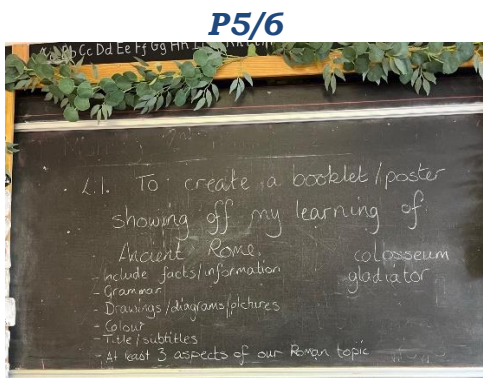 P5/6
Bb Cc Dd Ee Ff Gg Hh
L.I. To create a booklet/poster
showing off my learning of
Ancient Rome.
- Include facts/information
- Grammar
- Drawings/diagrams/pictures
- Colour
- Title/subtitles
- At least 3 aspects of our Roman topic
colosseum
gladiator